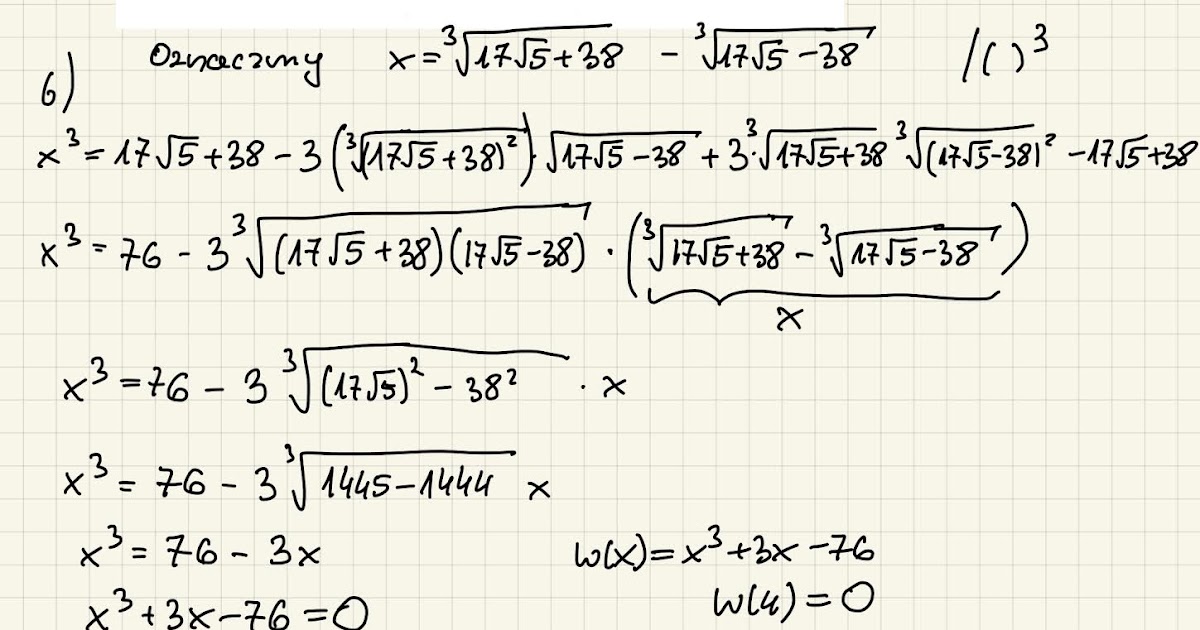 6) Oznaczmy x = ∛(17√5+38) - ∛(17√5-38) /( )³
x³ = 17√5+38 - 3(∛((17√5+38)²))·√(17√5-38) + 3·∛(17√5+38) ∛((17√5-38)²) - 17√5+38
x³ = 76 - 3∛((17√5+38)(17√5-38)) · (∛(17√5+38) - ∛(17√5-38))
x
x³ = 76 - 3∛((17√5)² - 38²) · x
x³ = 76 - 3∛(1445-1444) x
x³ = 76 - 3x w(x) = x³+3x-76
x³+3x-76 = 0 w(4) = 0